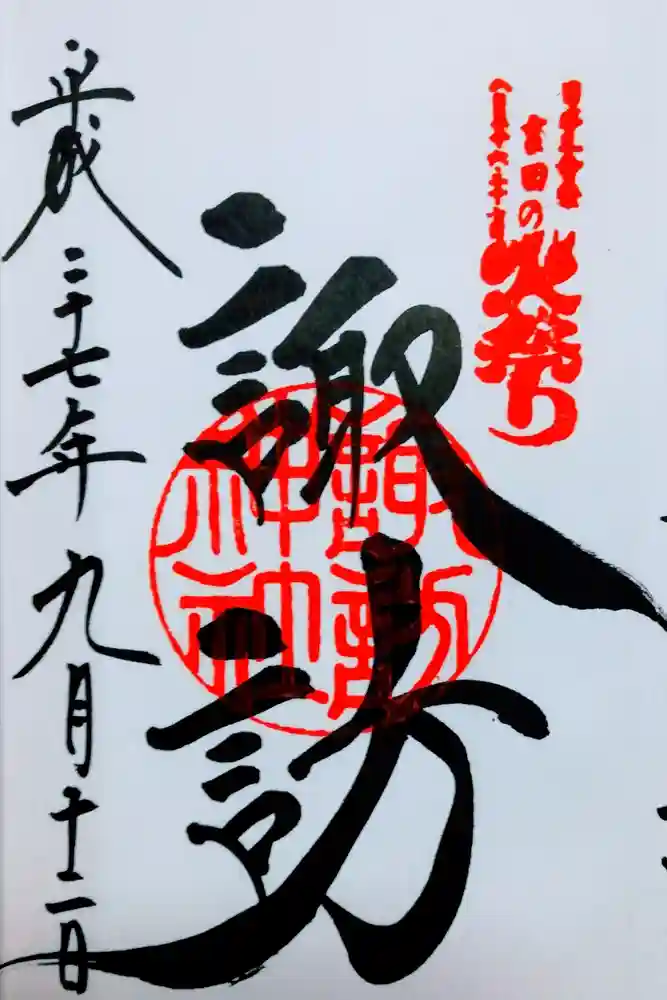 日本三奇祭
吉田の
火祭り
諏訪
諏訪
神社
平成二十七年九月十二日